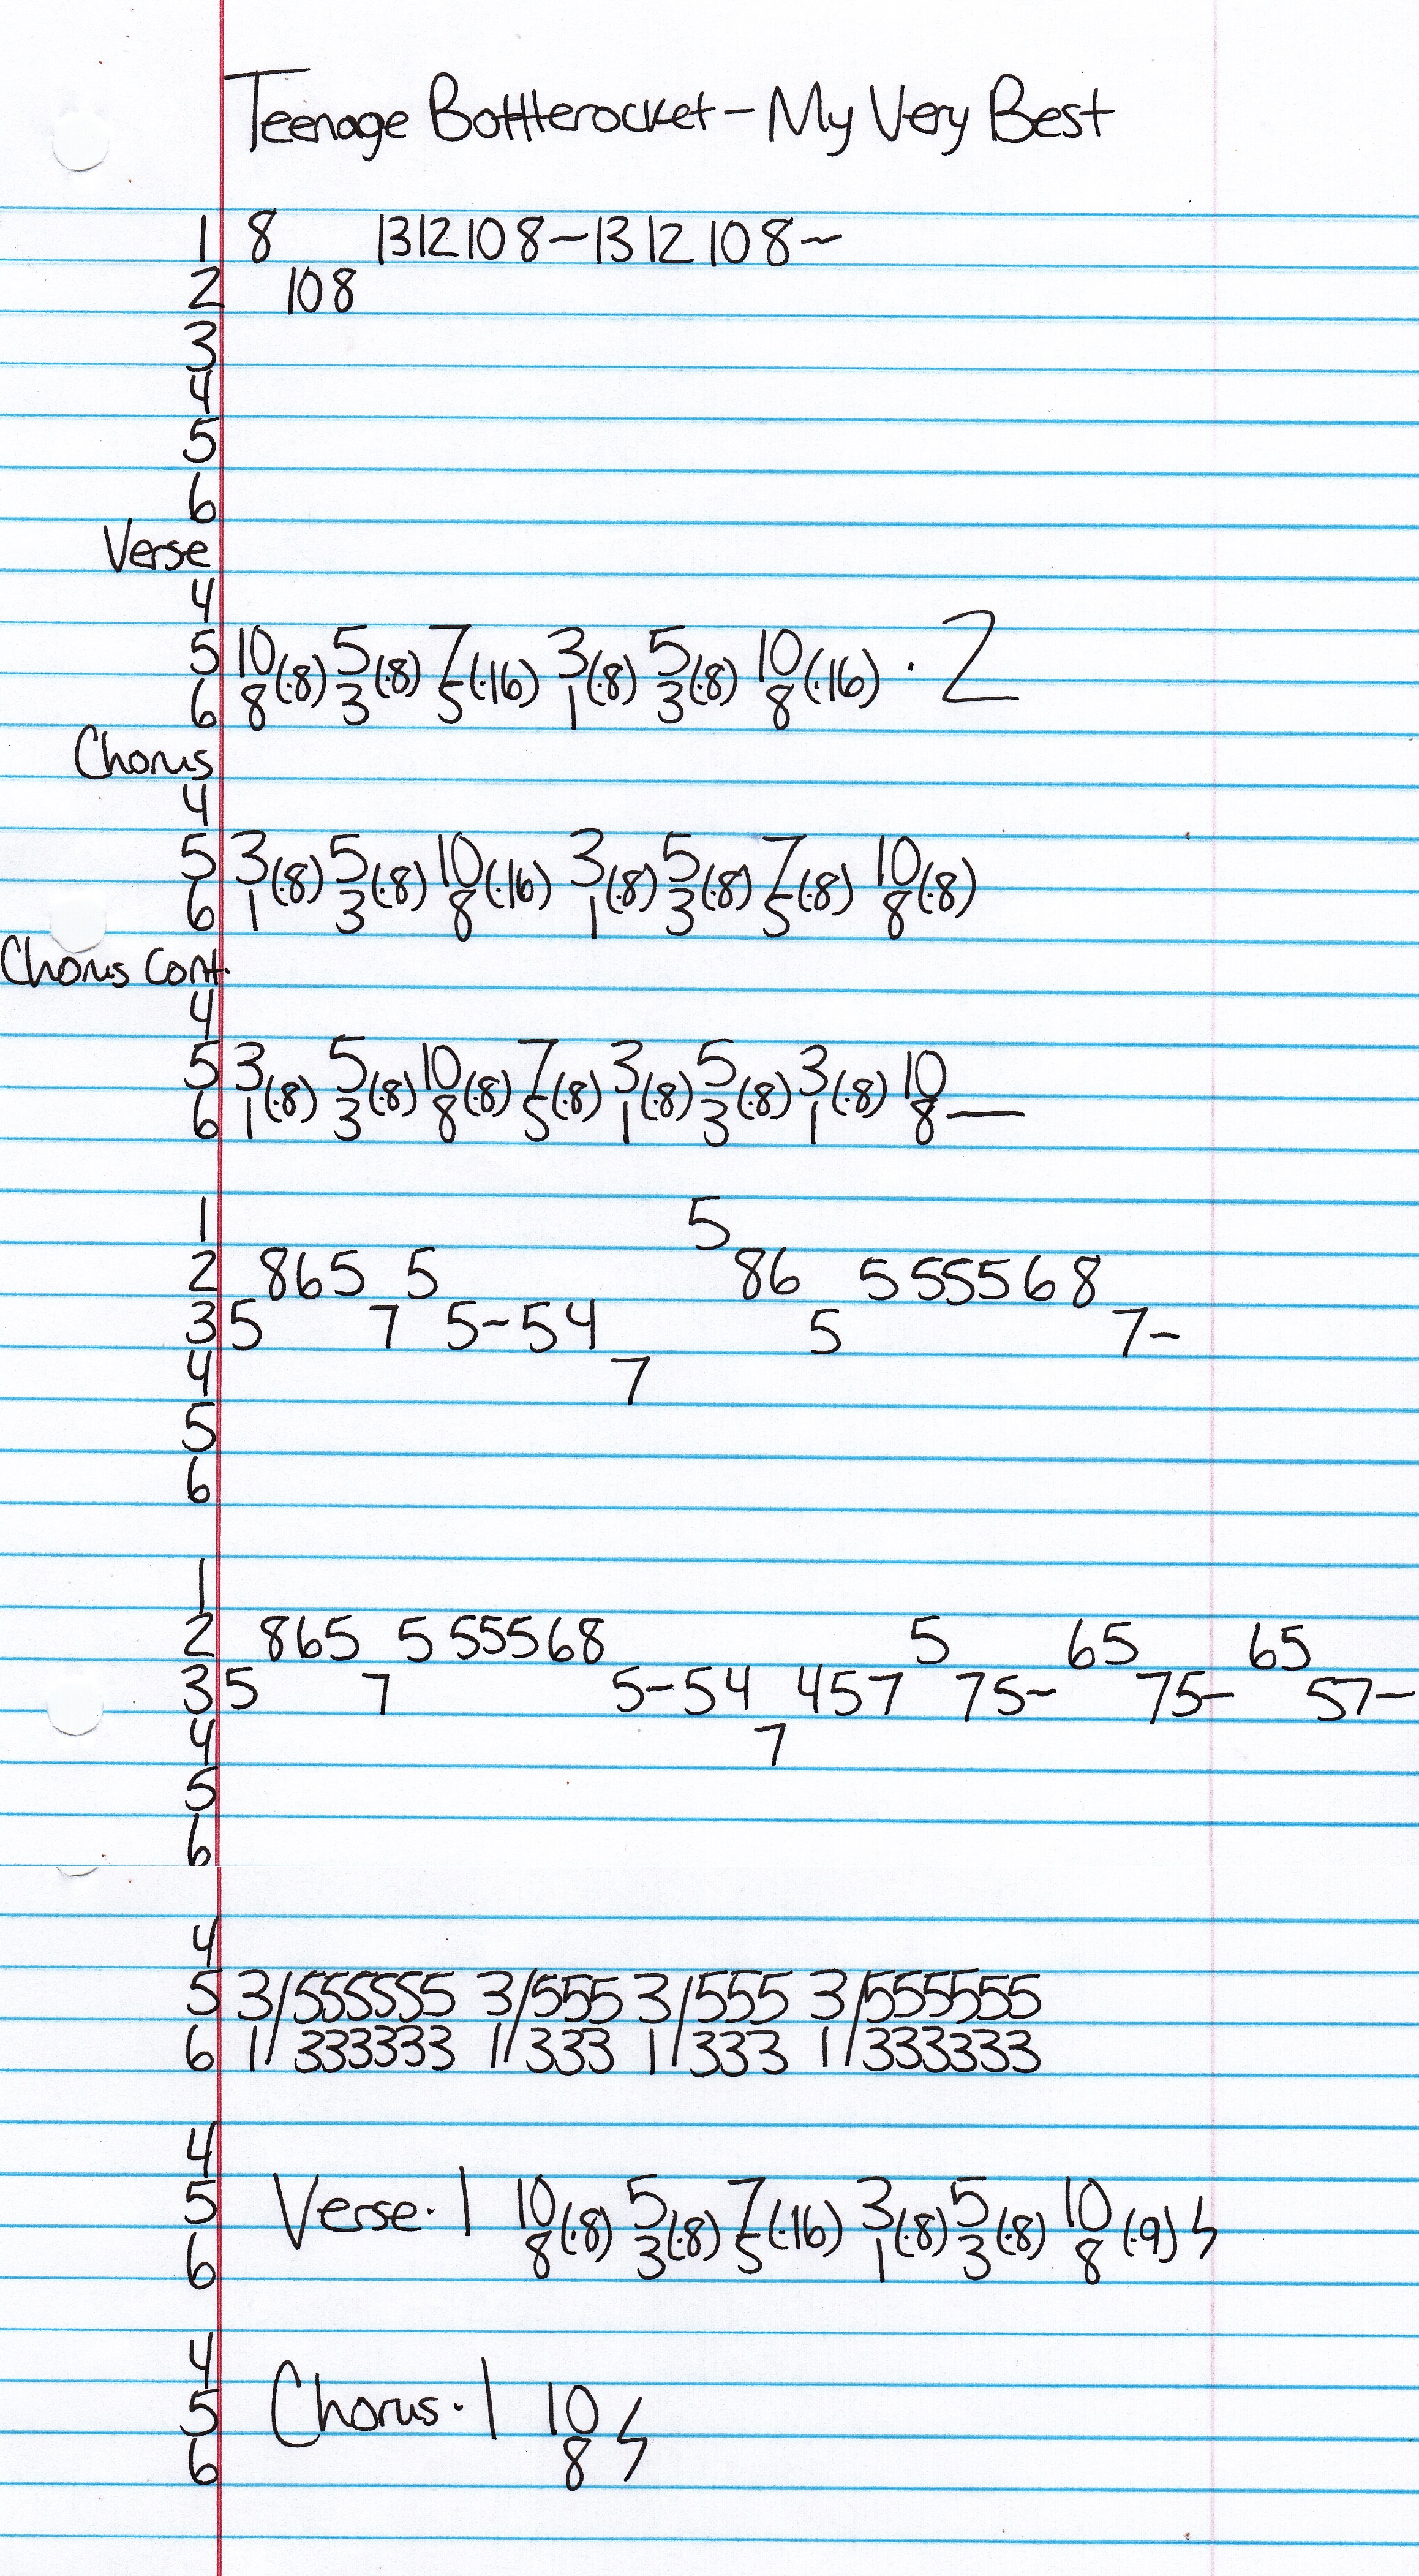 Teenage Bottlerocket - My Very Best
1 8 13 12 10 8~ 13 12 10 8~
2 10 8
3
4
5
6
Verse
4
5 10(·8) 5(·8) 7(·16) 3(·8) 5(·8) 10(·16) · 2
6 8 3 5 1 3 8
Chorus
4
5 3(·8) 5(·8) 10(·16) 3(·8) 5(·8) 7(·8) 10(·8)
6 1 3 8 1 3 5 8
Chorus Cont.
4
5 3(·8) 5(·8) 10(·8) 7(·8) 3(·8) 5(·8) 3(·8) 10
6 1 3 8 5 1 3 1 8—
1 5
2 865 5 86 5 555 6 8
3 5 7 5~54 5 7~
4 7
5
6
1
2 865 5 555 68 5 65 65
3 5 7 5~54 457 75~ 75~ 57~
4 7
5
6
4
5 3/555555 3/555 3/555 3/555555
6 1/333333 1/333 1/333 1/333333
4
5 Verse·1 10(·8) 5(·8) 7(·16) 3(·8) 5(·8) 10(·9)ϟ
6 8 3 5 1 3 8
4
5 Chorus·1 10ϟ
6 8